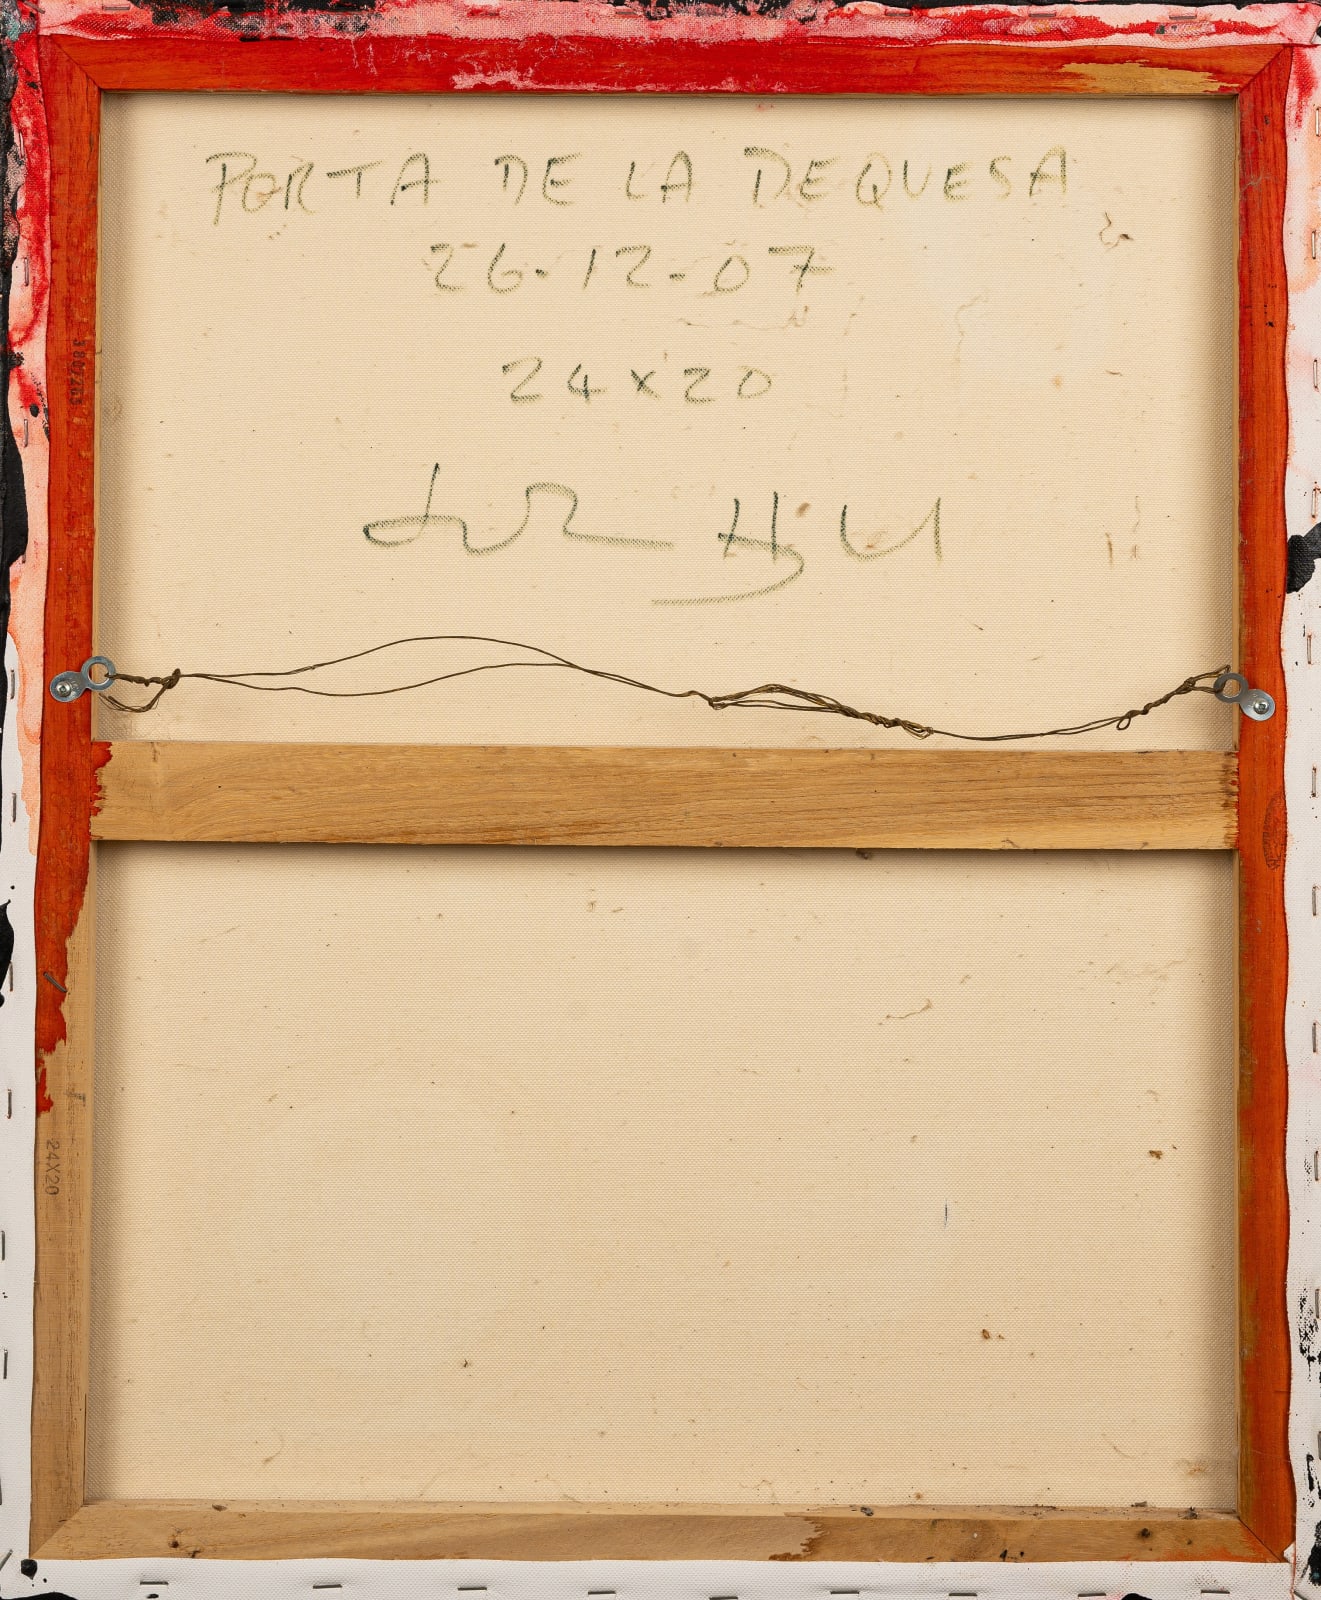 PORTA DE LA DEQUESA
26-12-07
24x20
24X20